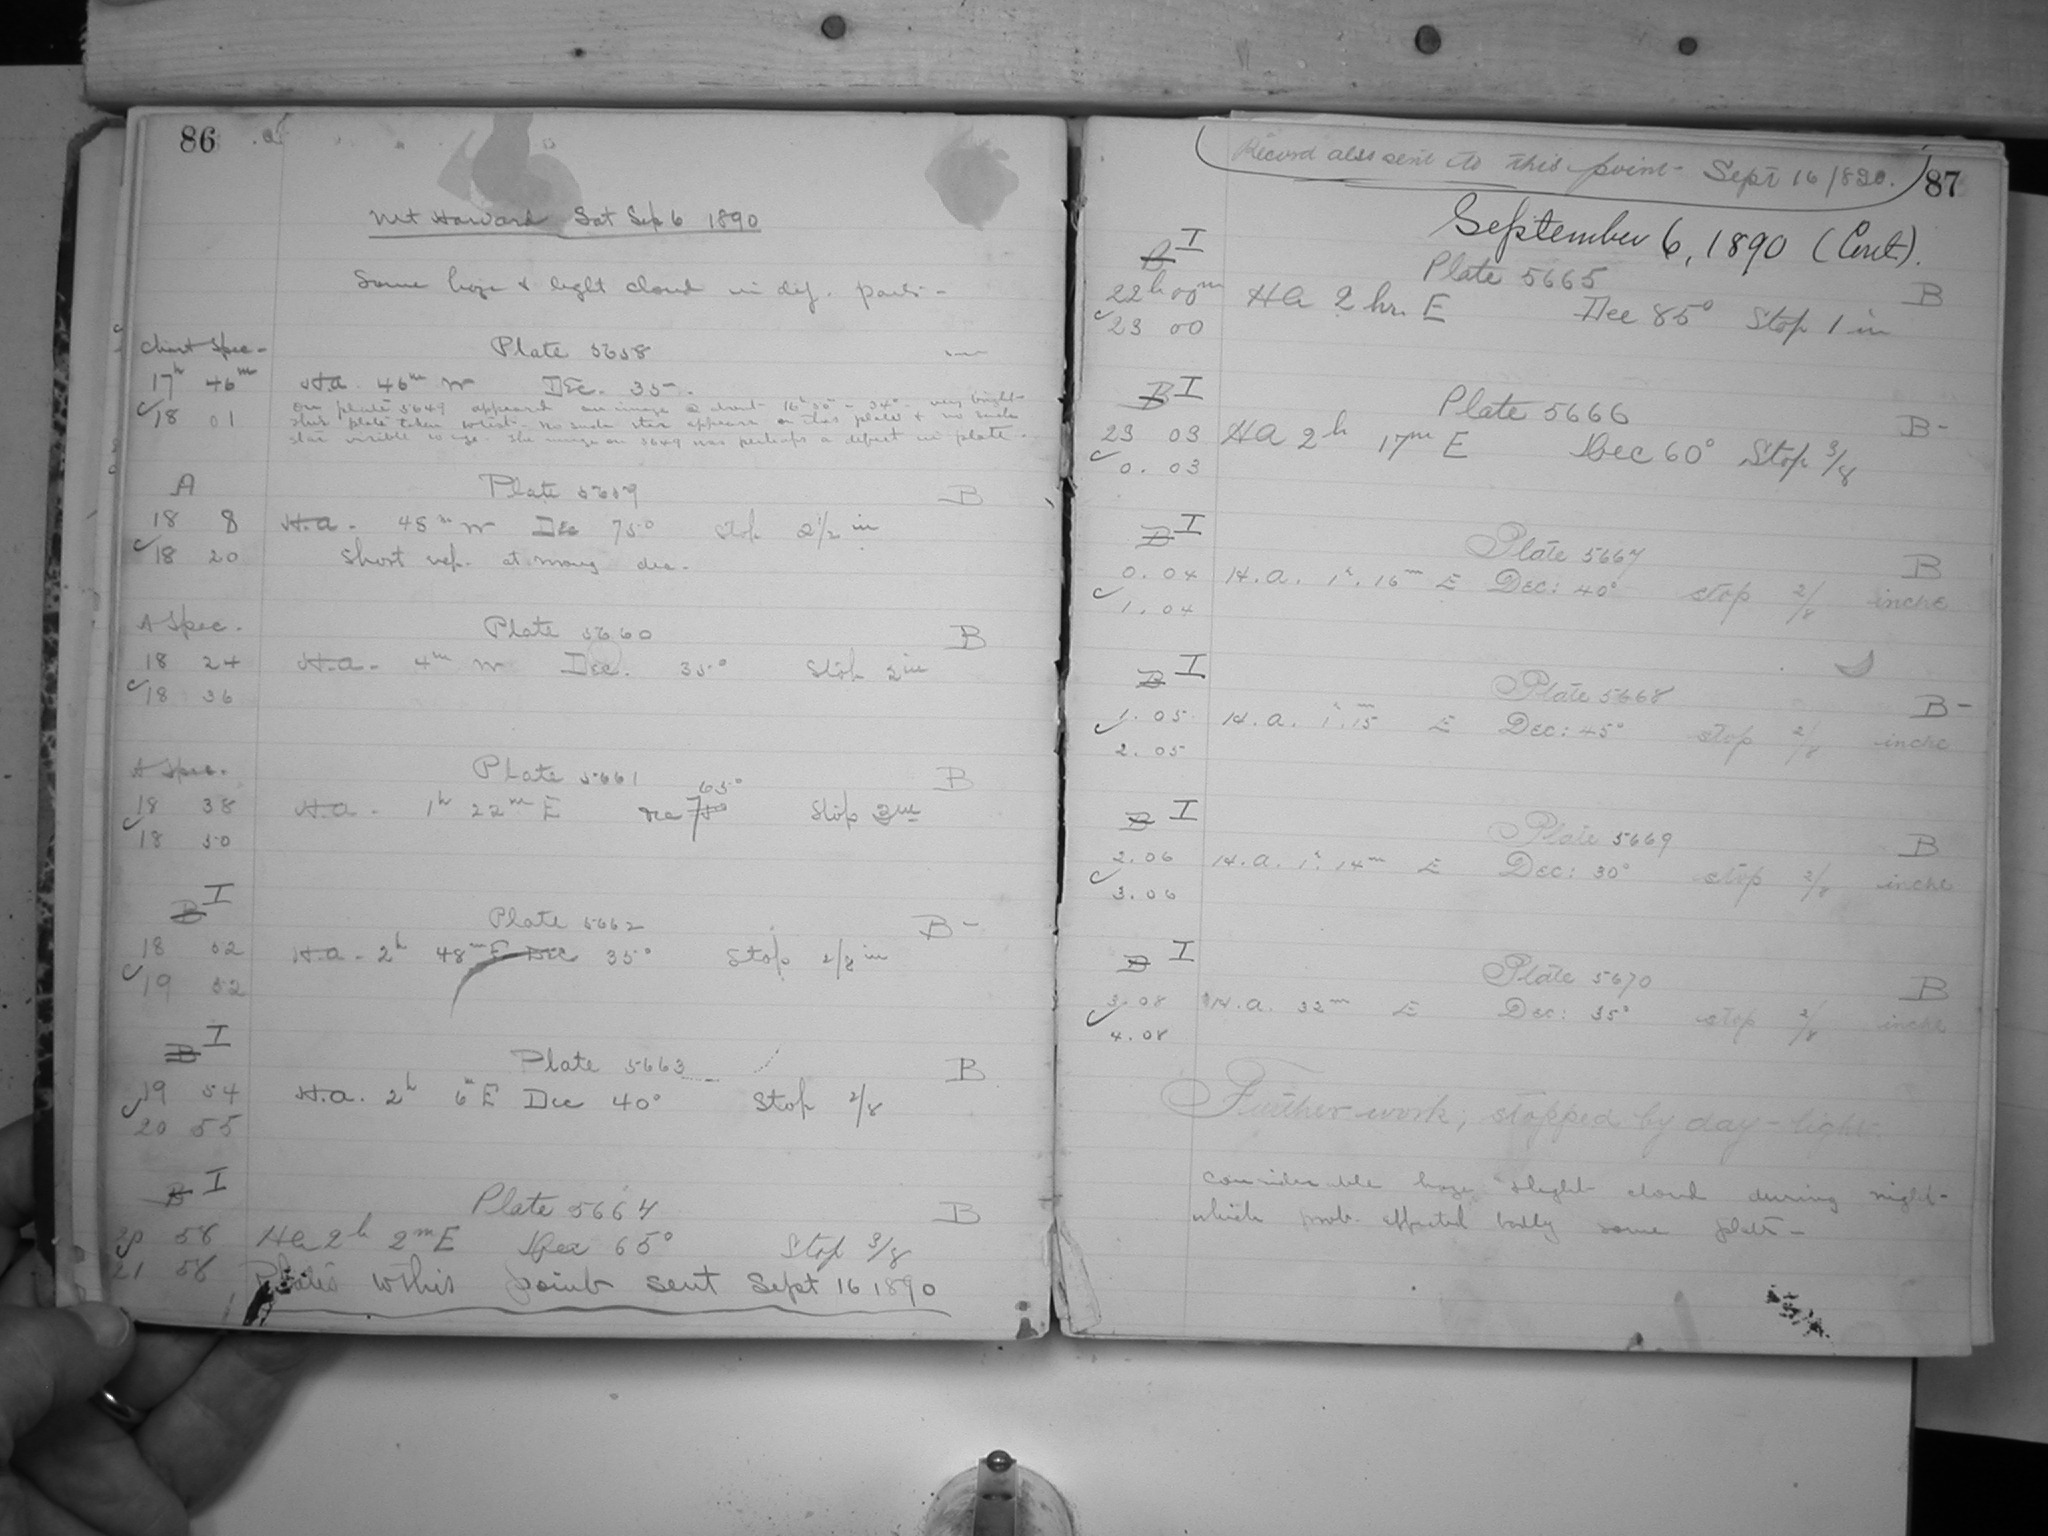 86
Mt Harvard Sat Sep 6 1890
Some haze & light cloud in dif. parts -
Chart Spec-
Plate 5658
17h 46m H.a. 46m W Dec. 35°.
18 01
On plate 5649 appeared an image about 16h 50m - 34° very bright
this plate taken to test. No such star appears on this plate & no such
star visible to eye. The image on 5649 was perhaps a defect in plate.
A Plate 5659 B
18 8 H.a. 48m W Dec 75° Stop 2 1/2 in
18 20 Short exp. at many dec.
A Spec. Plate 5660 B
18 24 H.a. 4m W Dec. 35° Stop 2 in
18 36
A Spec. Plate 5661 B
65°
18 38 H.a. 1h 22m E Dec 75° Stop 2 in
18 50
B I Plate 5662 B-
18 52 H.a. 2h 48m E Dec 35° Stop 2/8 in
19 52
B I Plate 5663 B
19 54 H.a. 2h 6m E Dec 40° Stop 2/8
20 55
B I Plate 5664 B
20 58 Ha 2h 2m E Dec 65° Stop 3/8
21 58
Plates to this point sent Sept 16 1890
Record also sent to this point - Sept 16/890.
87
September 6, 1890 (Cont).
B I Plate 5665 B
22h 00m HA 2 hr. E Dec 85° Stop 1 in
23 00
B I Plate 5666 B-
23 03 HA 2h 17m E Dec 60° Stop 3/8
0. 03
B I Plate 5667 B
0. 04 H.a. 1h. 16m E Dec: 40° stop 2/8 inche
1. 04
B I Plate 5668 B-
1. 05 H.a. 1h. 15m E Dec: 45° stop 2/8 inche
2. 05
B I Plate 5669 B
2. 06 H.a. 1h. 14m E Dec: 30° stop 2/8 inche
3. 06
B I Plate 5670 B
3. 08 H.a. 32m E Dec: 35° stop 2/8 inche
4. 08
Further work, stopped by day-light.
Considerable haze & light cloud during night -
which prob. effected badly some plates -